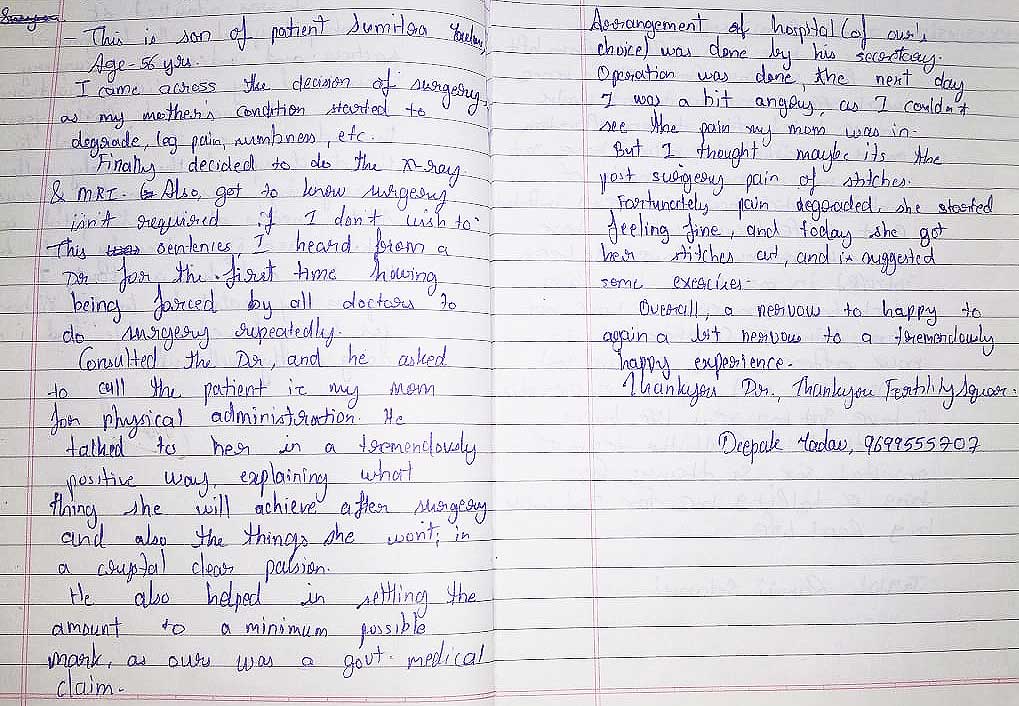 This is son of patient Sumitra Yadav,
Age - 56 yrs.
I came across the decision of surgery,
as my mother's condition started to
degrade, leg pain, numbness, etc.
Finally decided to do the x-ray
& MRI. Also, got to know surgery
isn't required if I don't wish to.
This sentences, I heard from a
Dr for the first time having
being forced by all doctors to
do surgery repeatedly.
Consulted the Dr, and he asked
to call the patient ie my mom
for physical administration. He
talked to her in a tremendously
positive way, explaining what
thing she will achieve after surgery
and also the things she won't; in
a crystal clear passion.
He also helped in settling the
amount to a minimum possible
mark, as ours was a govt. medical
claim.
Arrangement of hospital (of our's
choice) was done by his secretary.
Operation was done, the next day
I was a bit angry, as I couldn't
see the pain my mom was in.
But I thought maybe its the
post surgery pain of stitches.
Fortunately pain degraded, she started
feeling fine, and today she got
her stitches cut, and is suggested
some exercises.
Overall, a nervous to happy to
again a bit nervous to a tremendously
happy experience.
Thankyou Dr., Thankyou Fertility Square.
Deepak Yadav, 9699555707